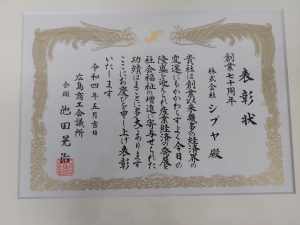 表彰状
創業七十周年
株式会社 シブヤ 殿
貴社は創業以来幾多の経済界の
変遷にもかかわらずよく今日の
隆盛を迎えられ産業経済の発展
社会福祉の増進に寄与せられた
功績はまことに多大であります
ここにお慶びを申し上げ表彰
いたします
令和四年五月吉日
広島商工会議所
会頭 池田晃治